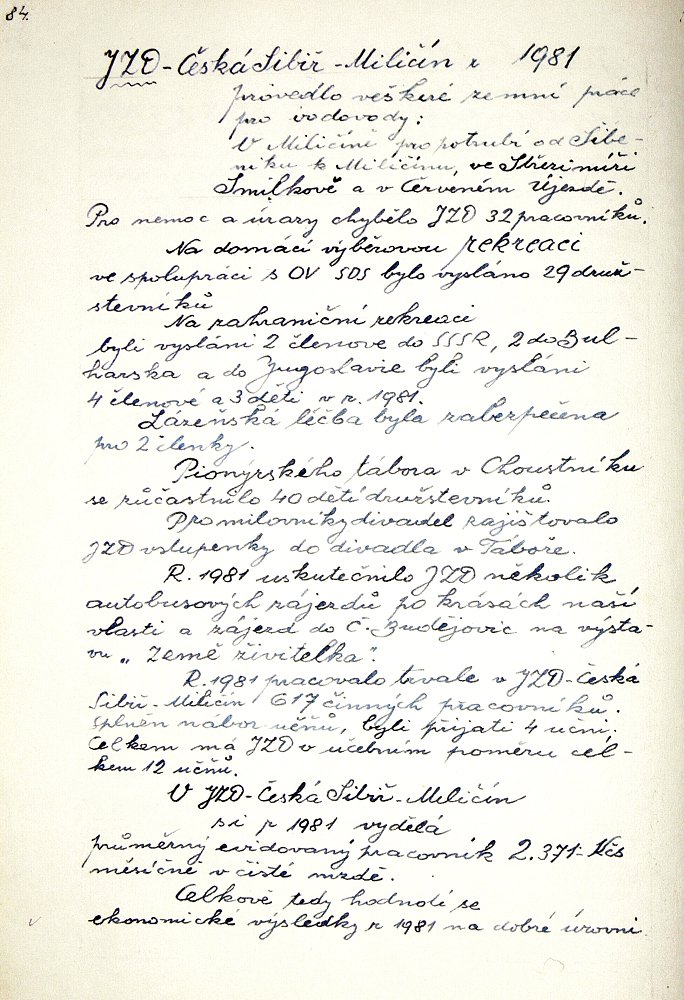 84.
JZD - Česká Sibiř - Miličín r 1981
provedlo veškeré zemní práce
pro vodovody:
V Miličíně pro potrubí od Sibe-
niku k Miličínu, ve Střezimíři
Smilkově a v Červeném Újezdě.
Pro nemoc a úrazy chybělo JZD 32 pracovníků.
Na domácí výběrovou rekreaci
ve spolupráci s OV SDS bylo vysláno 29 druž-
stevníků
Na zahraniční rekreaci
byli vysláni 2 členové do SSSR, 2 do Bul-
harska a do Jugoslavie byli vysláni
4 členové a 3 děti v r. 1981.
Lázeňská léčba byla zabezpečena
pro 2 členky.
Pionýrského tábora v Choustníku
se zúčastnilo 40 dětí družstevníků.
Pro milovníky divadel zajišťovalo
JZD vstupenky do divadla v Táboře.
R. 1981 uskutečnilo JZD několik
autobusových zájezdů po krásách naší
vlasti a zájezd do Č. Budějovic na výsta-
vu „Země živitelka".
R. 1981 pracovalo trvale v JZD - Česká
Sibiř - Miličín 617 činných pracovníků.
Splněn nábor učňů, byli přijati 4 učni.
Celkem má JZD v učebním poměru cel-
kem 12 učňů.
V JZD - Česká Sibiř - Miličín
si r 1981 vydělá
průměrný evidovaný pracovník 2.371.- Kčs
měsíčně v čisté mzdě.
Celkově tedy hodnotí se
ekonomické výsledky r 1981 na dobré úrovni